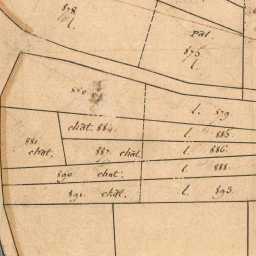 878
l.
pal.
875
l.
880
l. 879
chãt. 884
l. 885.
881
chat.
887 chãt.
l. 886.
890 chat.
l. 888.
891 chãt.
l. 893.